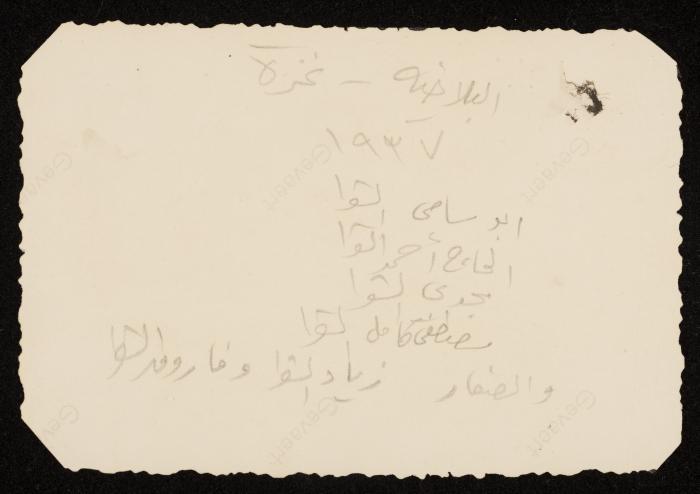 البلاخيه - غزة
١٩٣٧
ابو سامي الشوا
الحاج أحمد الشوا
مجدي الشوا
مصطفى كامل الشوا
والصغار زياد الشوا وفاروق الشوا
Gevaert
Gevaert
Gevaert
Gevaert
Gevaert
Gevaert